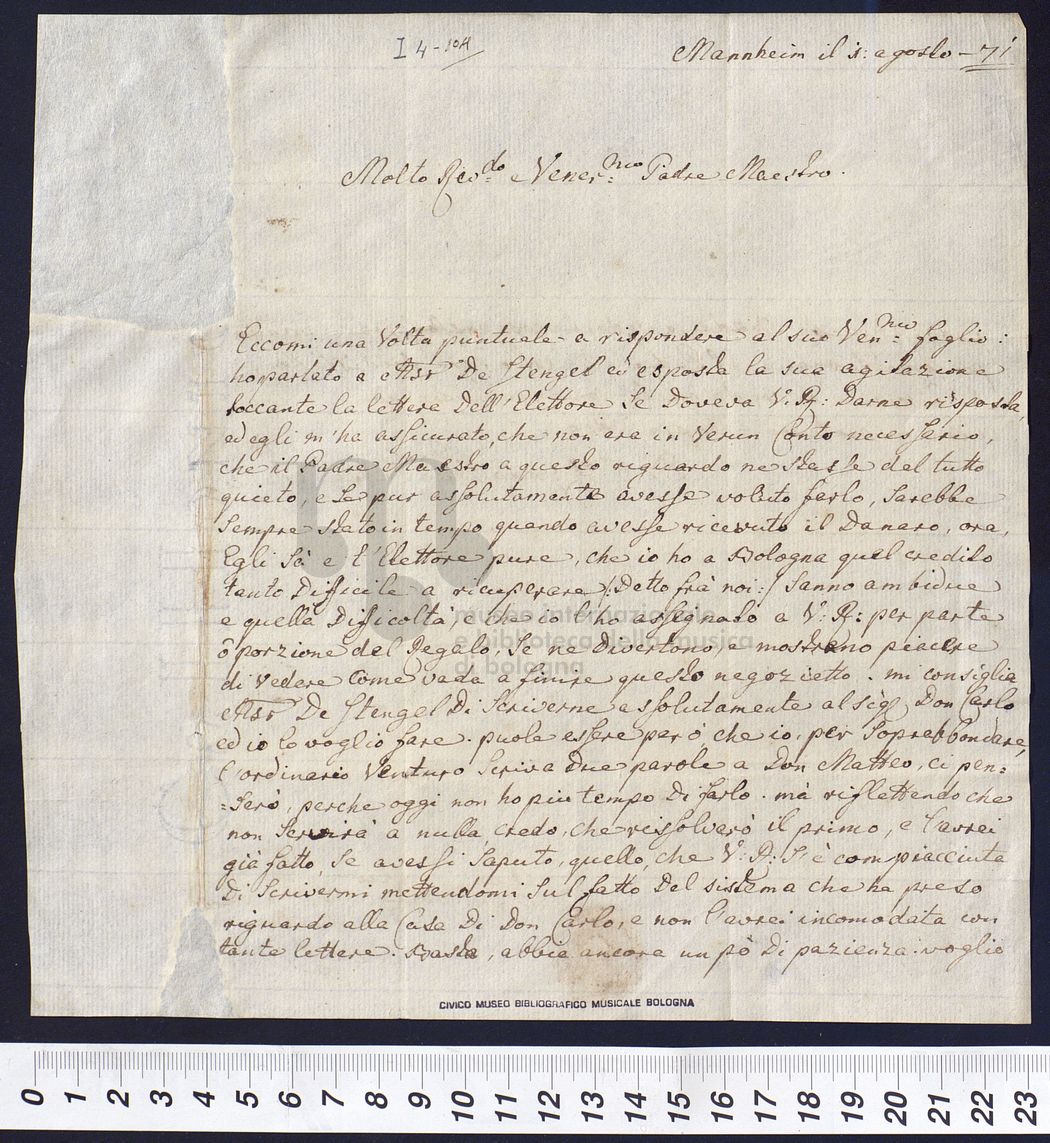 I 4-104
Mannheim il 1: agosto - 71
Molto Revdo: e Venermo: Padre Maestro.
Eccomi una Volta puntuale a rispondere al suo Venmo: foglio:
ho parlato a Msr De Stengel ed esposta la sua agitazione
toccante la lettere Dell'Elettore Se Doveva V: R: Darne risposta,
ed egli m'ha assicurato, che non era in Verun Conto necessario,
che il Padre Maestro a questo riguardo ne stasse del tutto
quieto, e Se pur assolutamente avesse voluto farlo, Sarebbe
Sempre stato in tempo quando avesse ricevuto il Danaro, ora,
Egli Sà e l'Elettore pure, che io ho a Bologna quel credito
tanto Difficile a ricuperare /: Detto frà noi :/ Sanno ambidue
e quella Difficoltà, e che io l'ho assegnato a V: R: per parte
ò porzione del Regalo, Se ne Divertono, e mostrano piacere
di Vedere Come vada a finire questo negozietto. mi consiglia
Msr De Stengel Di Scriverne assolutamente al Sigr Don Carlo
ed io lo voglio fare. puole essere però che io, per Soprabbondare,
l'ordinario Venturo Scriva due parole a Don Matteo, ci pen=
=serò, perche oggi non ho piu tempo Di farlo. mà riflettendo che
non Servirà a nulla, credo, che rissolverò il primo, e l'avrei
già fatto, Se avessi Saputo, quello, che V: R: S'è compiacciuta
Di Scrivermi mettendomi Sul fatto Del sistema che ha preso
riguardo alla Casa Di Don Carlo, e non l'avrei incomodata con
tante lettere. Basta, abbia ancora un pò Di pazienza: voglio
museo internazionale
e biblioteca della musica
di bologna
CIVICO MUSEO BIBLIOGRAFICO MUSICALE BOLOGNA
0 1 2 3 4 5 6 7 8 9 10 11 12 13 14 15 16 17 18 19 20 21 22 23